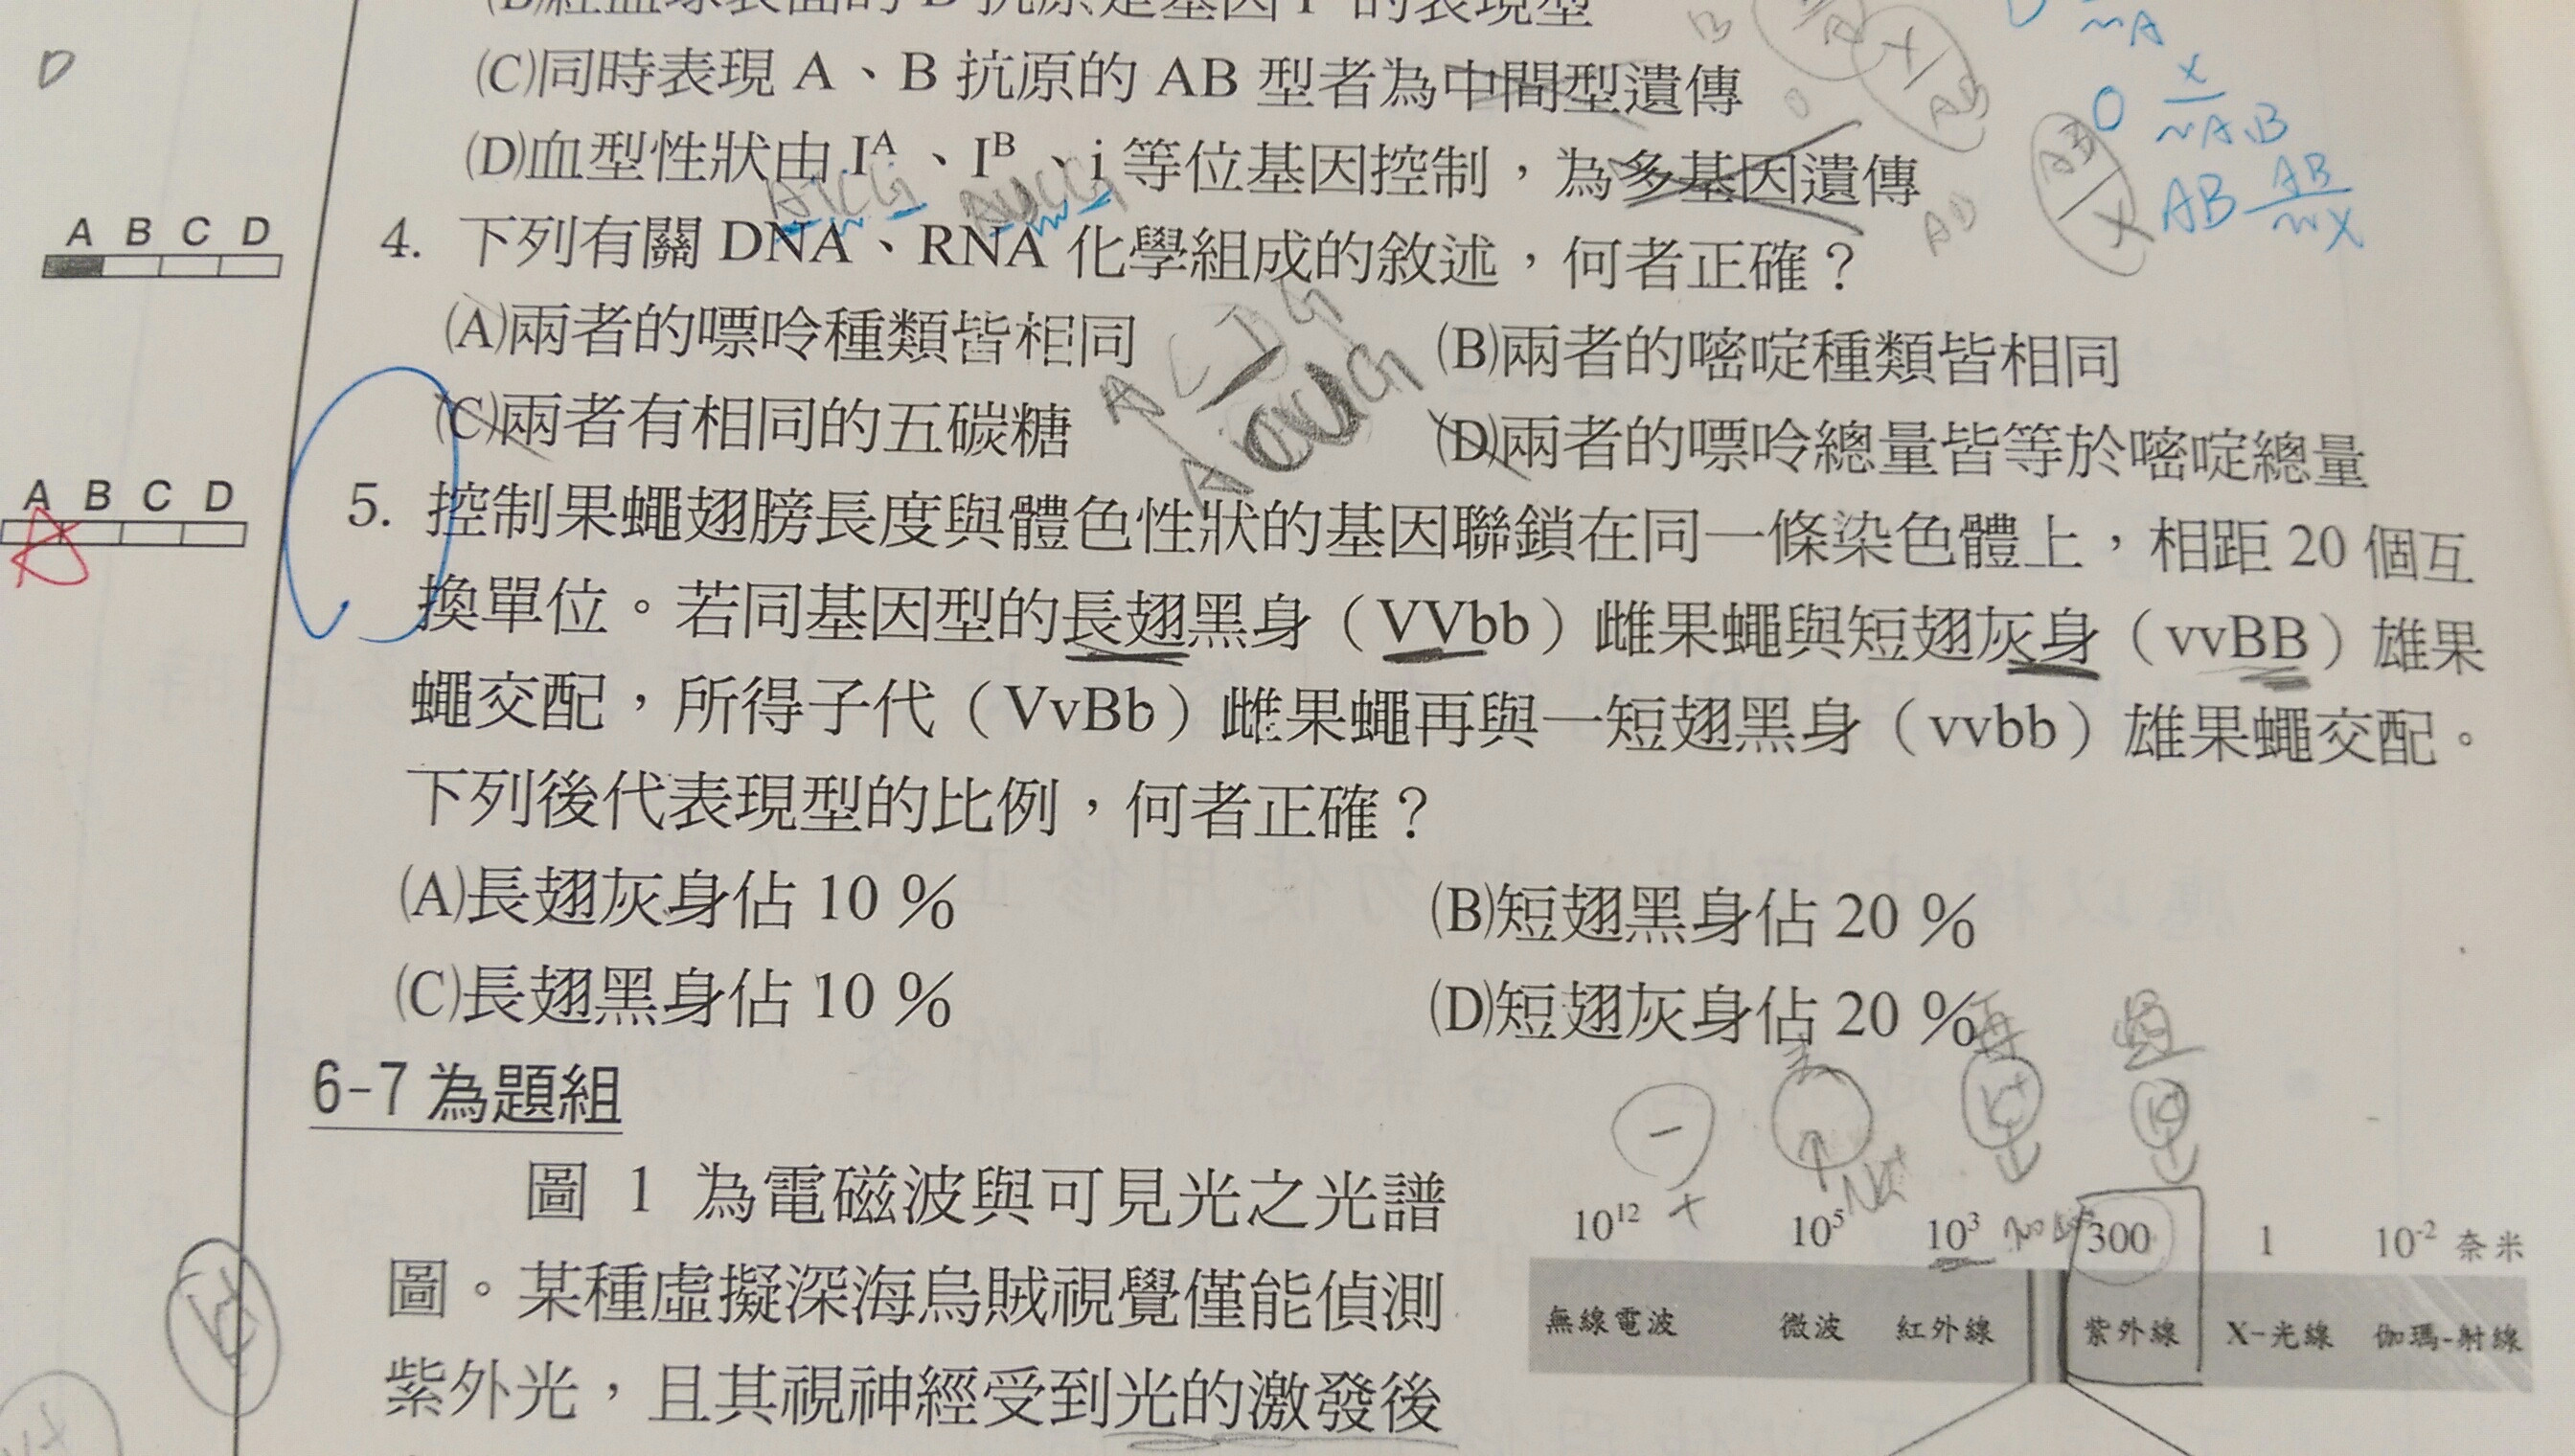 (C)同時表現 A、B 抗原的 AB 型者為中間型遺傳
(D)血型性狀由 Iᴬ、Iᴮ、i 等位基因控制，為多基因遺傳
A B C D
4. 下列有關 DNA、RNA 化學組成的敘述，何者正確？
(A)兩者的嘌呤種類皆相同
(B)兩者的嘧啶種類皆相同
(C)兩者有相同的五碳糖
(D)兩者的嘌呤總量皆等於嘧啶總量
A B C D
5. 控制果蠅翅膀長度與體色性狀的基因聯鎖在同一條染色體上，相距 20 個互
換單位。若同基因型的長翅黑身（VVbb）雌果蠅與短翅灰身（vvBB）雄果
蠅交配，所得子代（VvBb）雌果蠅再與一短翅黑身（vvbb）雄果蠅交配。
下列後代表現型的比例，何者正確？
(A)長翅灰身佔 10 %
(B)短翅黑身佔 20 %
(C)長翅黑身佔 10 %
(D)短翅灰身佔 20 %
6-7 為題組
圖 1 為電磁波與可見光之光譜
圖。某種虛擬深海烏賊視覺僅能偵測
紫外光，且其視神經受到光的激發後
10¹² 10⁵ 10³ 300 1 10⁻² 奈米
無線電波 微波 紅外線 紫外線 X-光線 伽瑪-射線